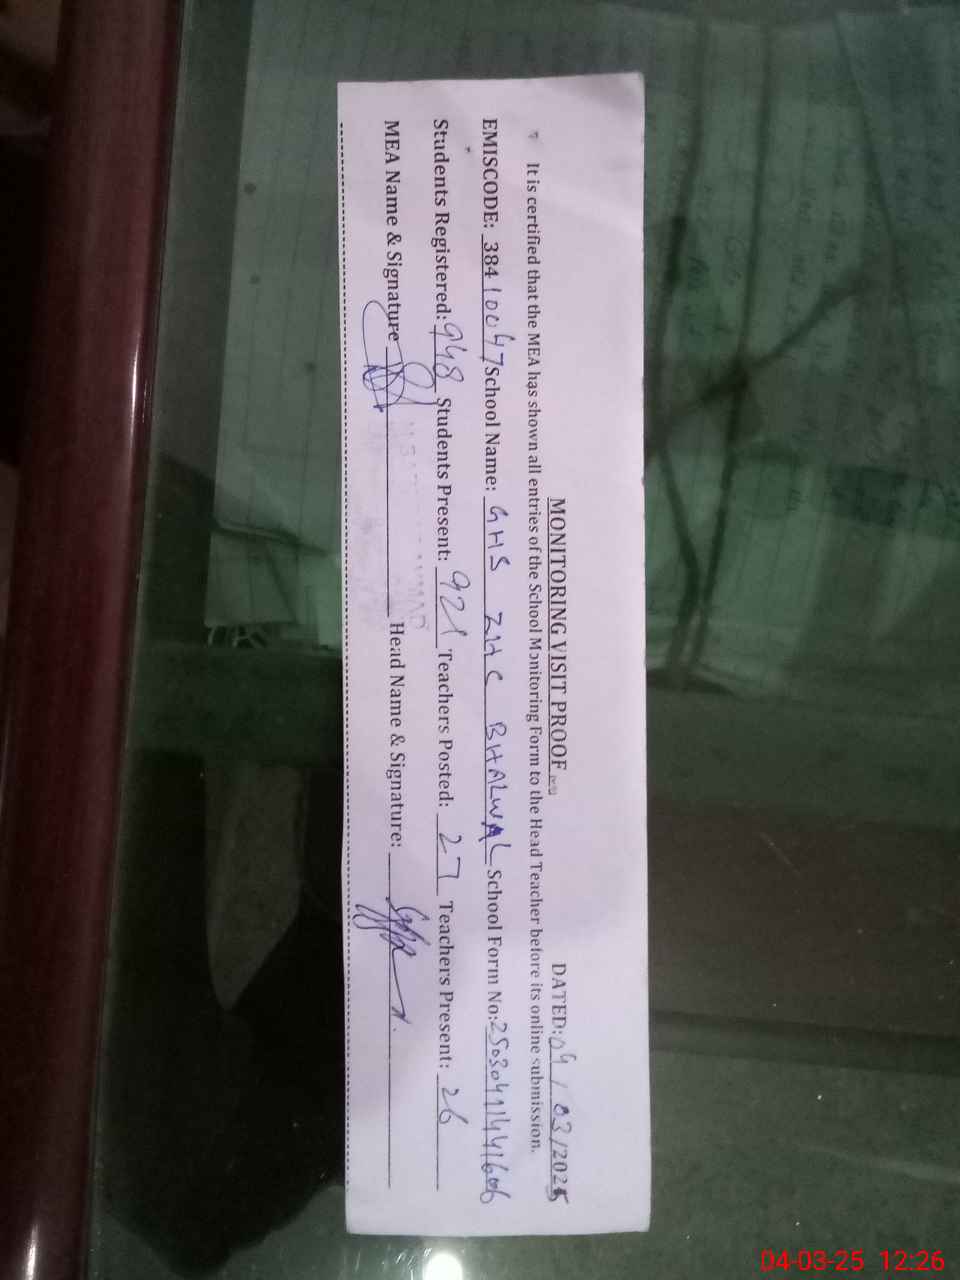 MONITORING VISIT PROOF
DATED: 04/03/2025
It is certified that the MEA has shown all entries of the School Monitoring Form to the Head Teacher before its online submission.
EMISCODE: 38410047 School Name: GHS ZHC BHALWAL School Form No: 2503041441606
Students Registered: 948 Students Present: 921 Teachers Posted: 27 Teachers Present: 26
MEA Name & Signature Head Name & Signature:
04-03-25 12:26